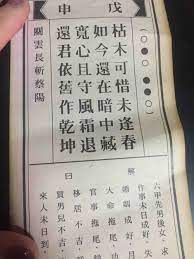 戊申
枯木可惜未逢春
如今還在暗中藏
寬心且守風霜退
還君依舊作乾坤
關雲長斬蔡陽
解曰
六甲先男後女 求
作事未日成好 失
婚姻成好 月
大命拖尾
官事拖尾
移居不吉
賀男兒不吉
來人未日到